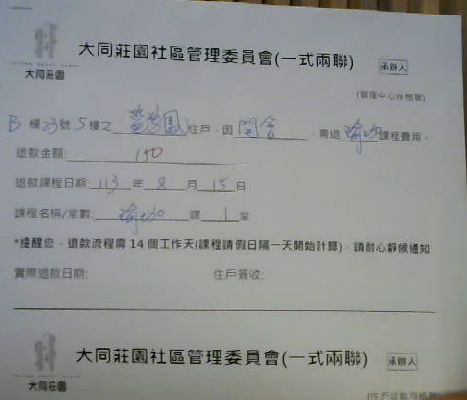 大同莊園社區管理委員會(一式兩聯)
承辦人
大同莊園
(管理中心存根聯)
B 棟 23 號 5 樓之 住戶,因 開會 ,需退 瑜珈 課程費用。
退款金額: 150
退款課程日期: 113 年 8 月 15 日
課程名稱/堂數: 瑜珈 課 1 堂
*提醒您,退款流程需 14 個工作天(課程請假日隔一天開始計算),請耐心靜候通知
實際退款日期: 住戶簽收:
大同莊園社區管理委員會(一式兩聯)
承辦人
大同莊園